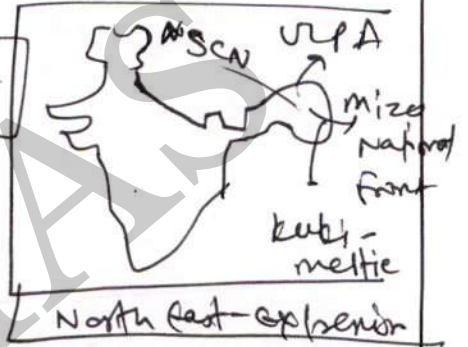 NSCN
ULFA
Mizo
National
Front
kuki-
meitie
North East-explosion